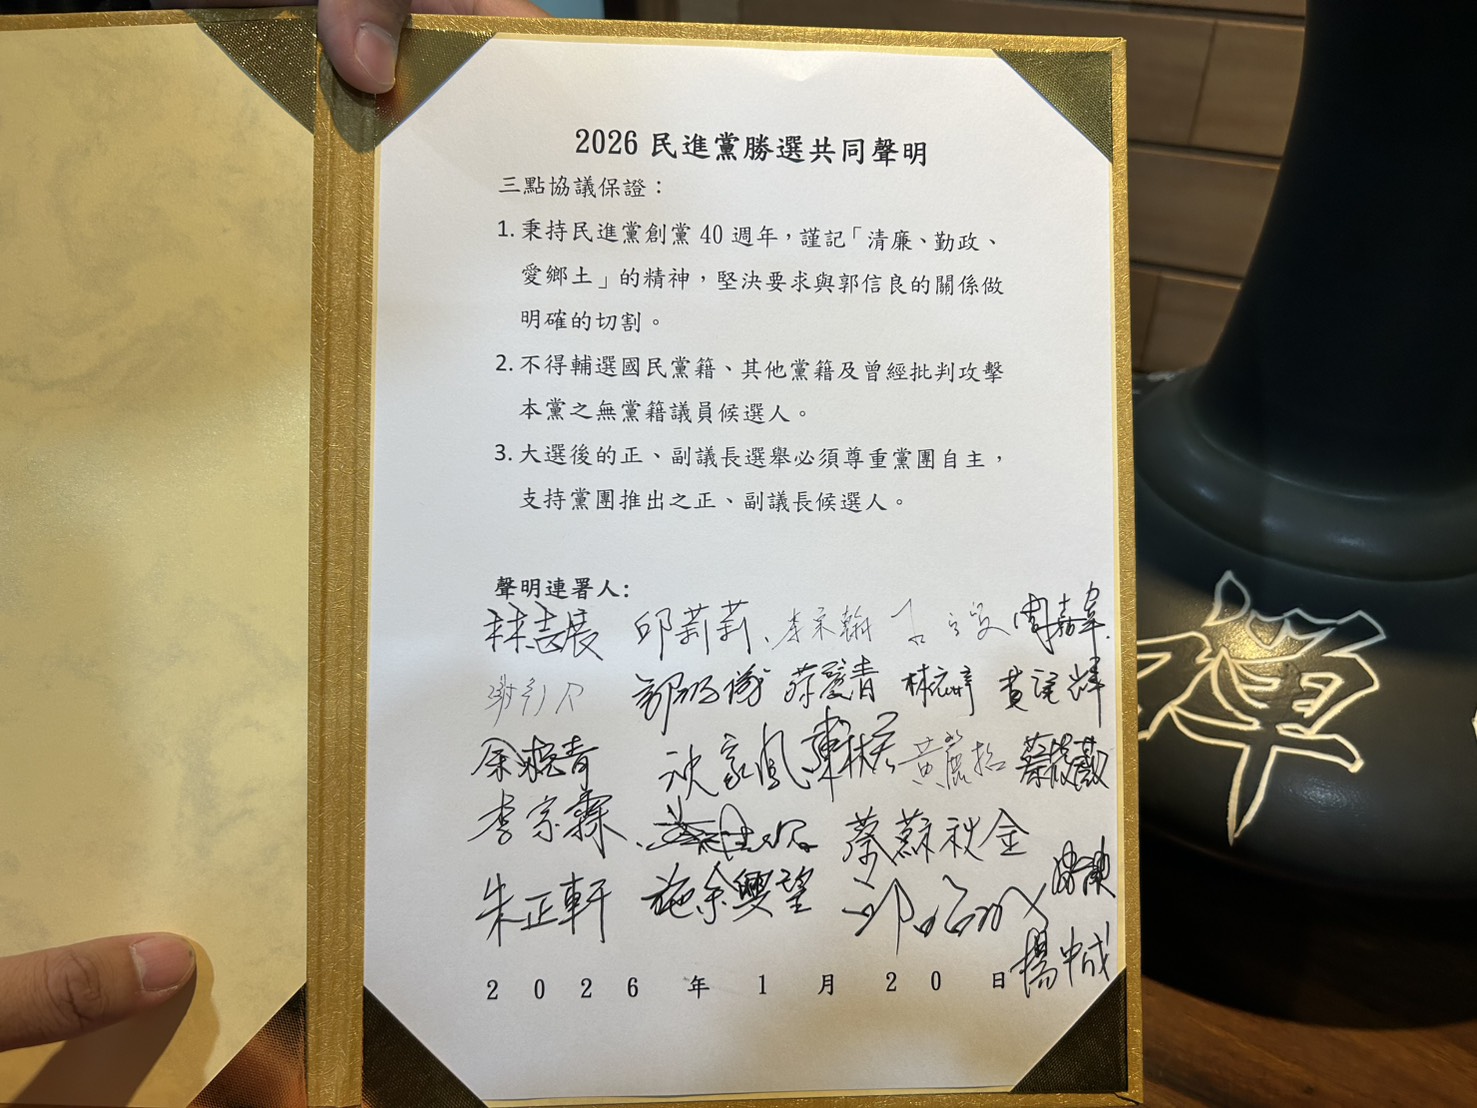 2026 民進黨勝選共同聲明
三點協議保證：
1. 秉持民進黨創黨 40 週年，謹記「清廉、勤政、
愛鄉土」的精神，堅決要求與郭信良的關係做
明確的切割。
2. 不得輔選國民黨籍、其他黨籍及曾經批判攻擊
本黨之無黨籍議員候選人。
3. 大選後的正、副議長選舉必須尊重黨團自主，
支持黨團推出之正、副議長候選人。
聲明連署人:
林志展 邱莉莉 周嘉韋
蔡筱薇
余柷青
李宗霖 蔡蘇秋金
朱正軒 施余興望
楊中成
2026 年 1 月 20 日
禪